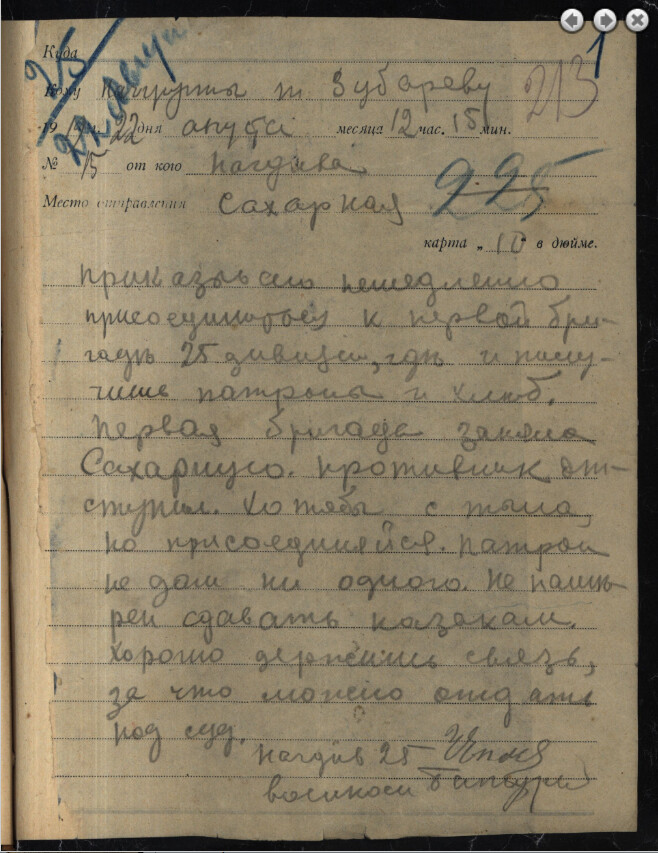 25
22 Август
1
213
Куда
Кому Нач группы т Зубареву
1919 г. 22 дня августа месяца 12 час. 15 мин.
№ 15 от кого Начдива
225
Место отправления Сахарная
карта „10“ в дюйме.
Приказываю немедленно
присоединиться к первой бри-
гаде 25 дивизии, где и полу-
чишь патроны и хлеб.
Первая бригада заняла
Сахарную. Противник от-
ступил. Хотя бы с тыла,
но присоединяйся. Патрон
не дам ни одного. Не намѣ-
рен сдавать казакам.
Хорошо держишь связь,
за что можно отдать
под суд.
Начдив 25
военком Батурин